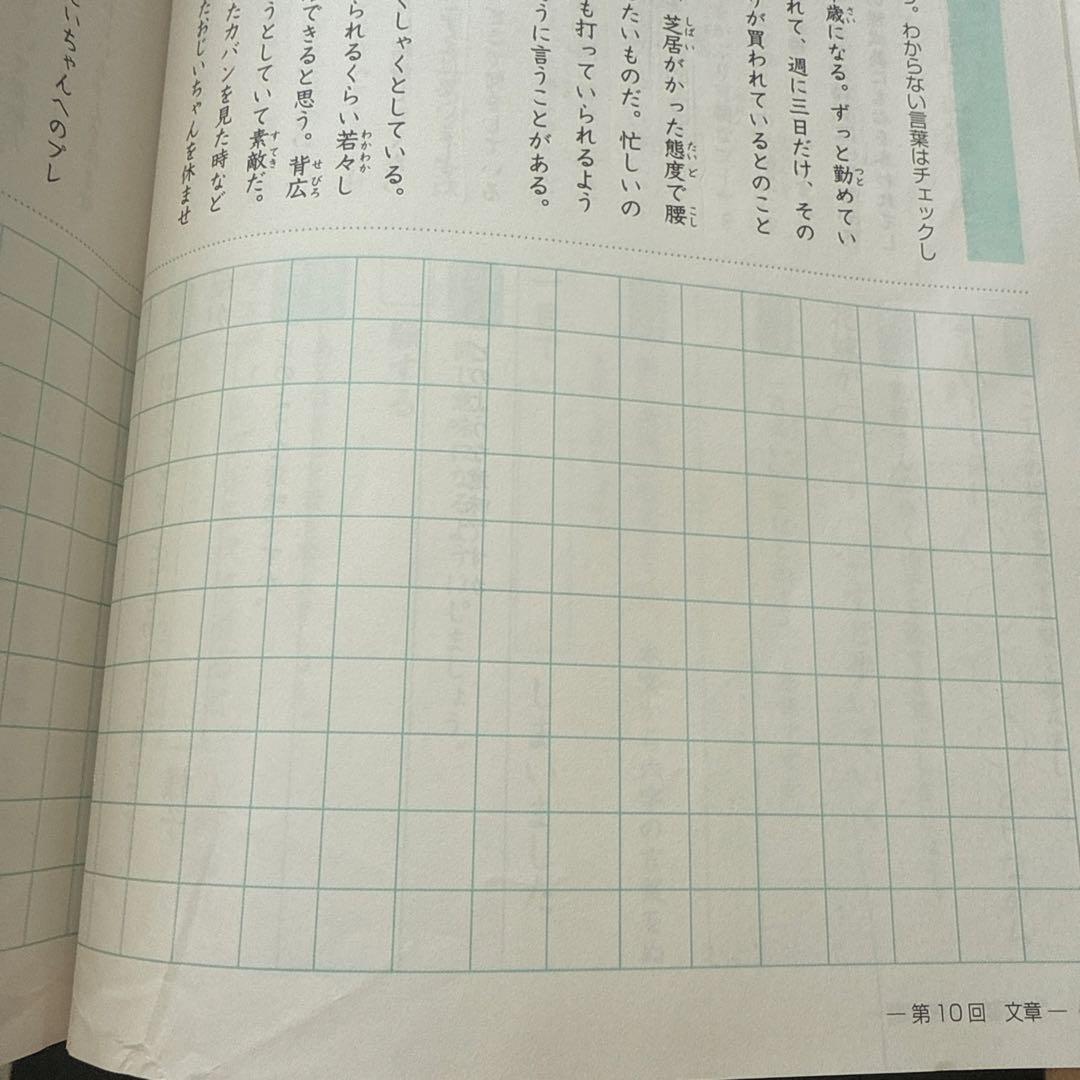 。わからない言葉はチェックし
歳になる。ずっと勤めてい
さい
つと
れて、週に三日だけ、その
が買われているとのこと
芝居がかった態度で腰
しばい
たいど
こし
たいものだ。忙しいの
も打っていられるよう
うに言うことがある。
くしゃくとしている。
られるくらい若々し
わかわか
できると思う。背広
せびろ
うとしていて素敵だ。
すてき
たカバンを見た時など
たおじいちゃんを休ませ
いちゃんへのプレ
—第10回 文章—